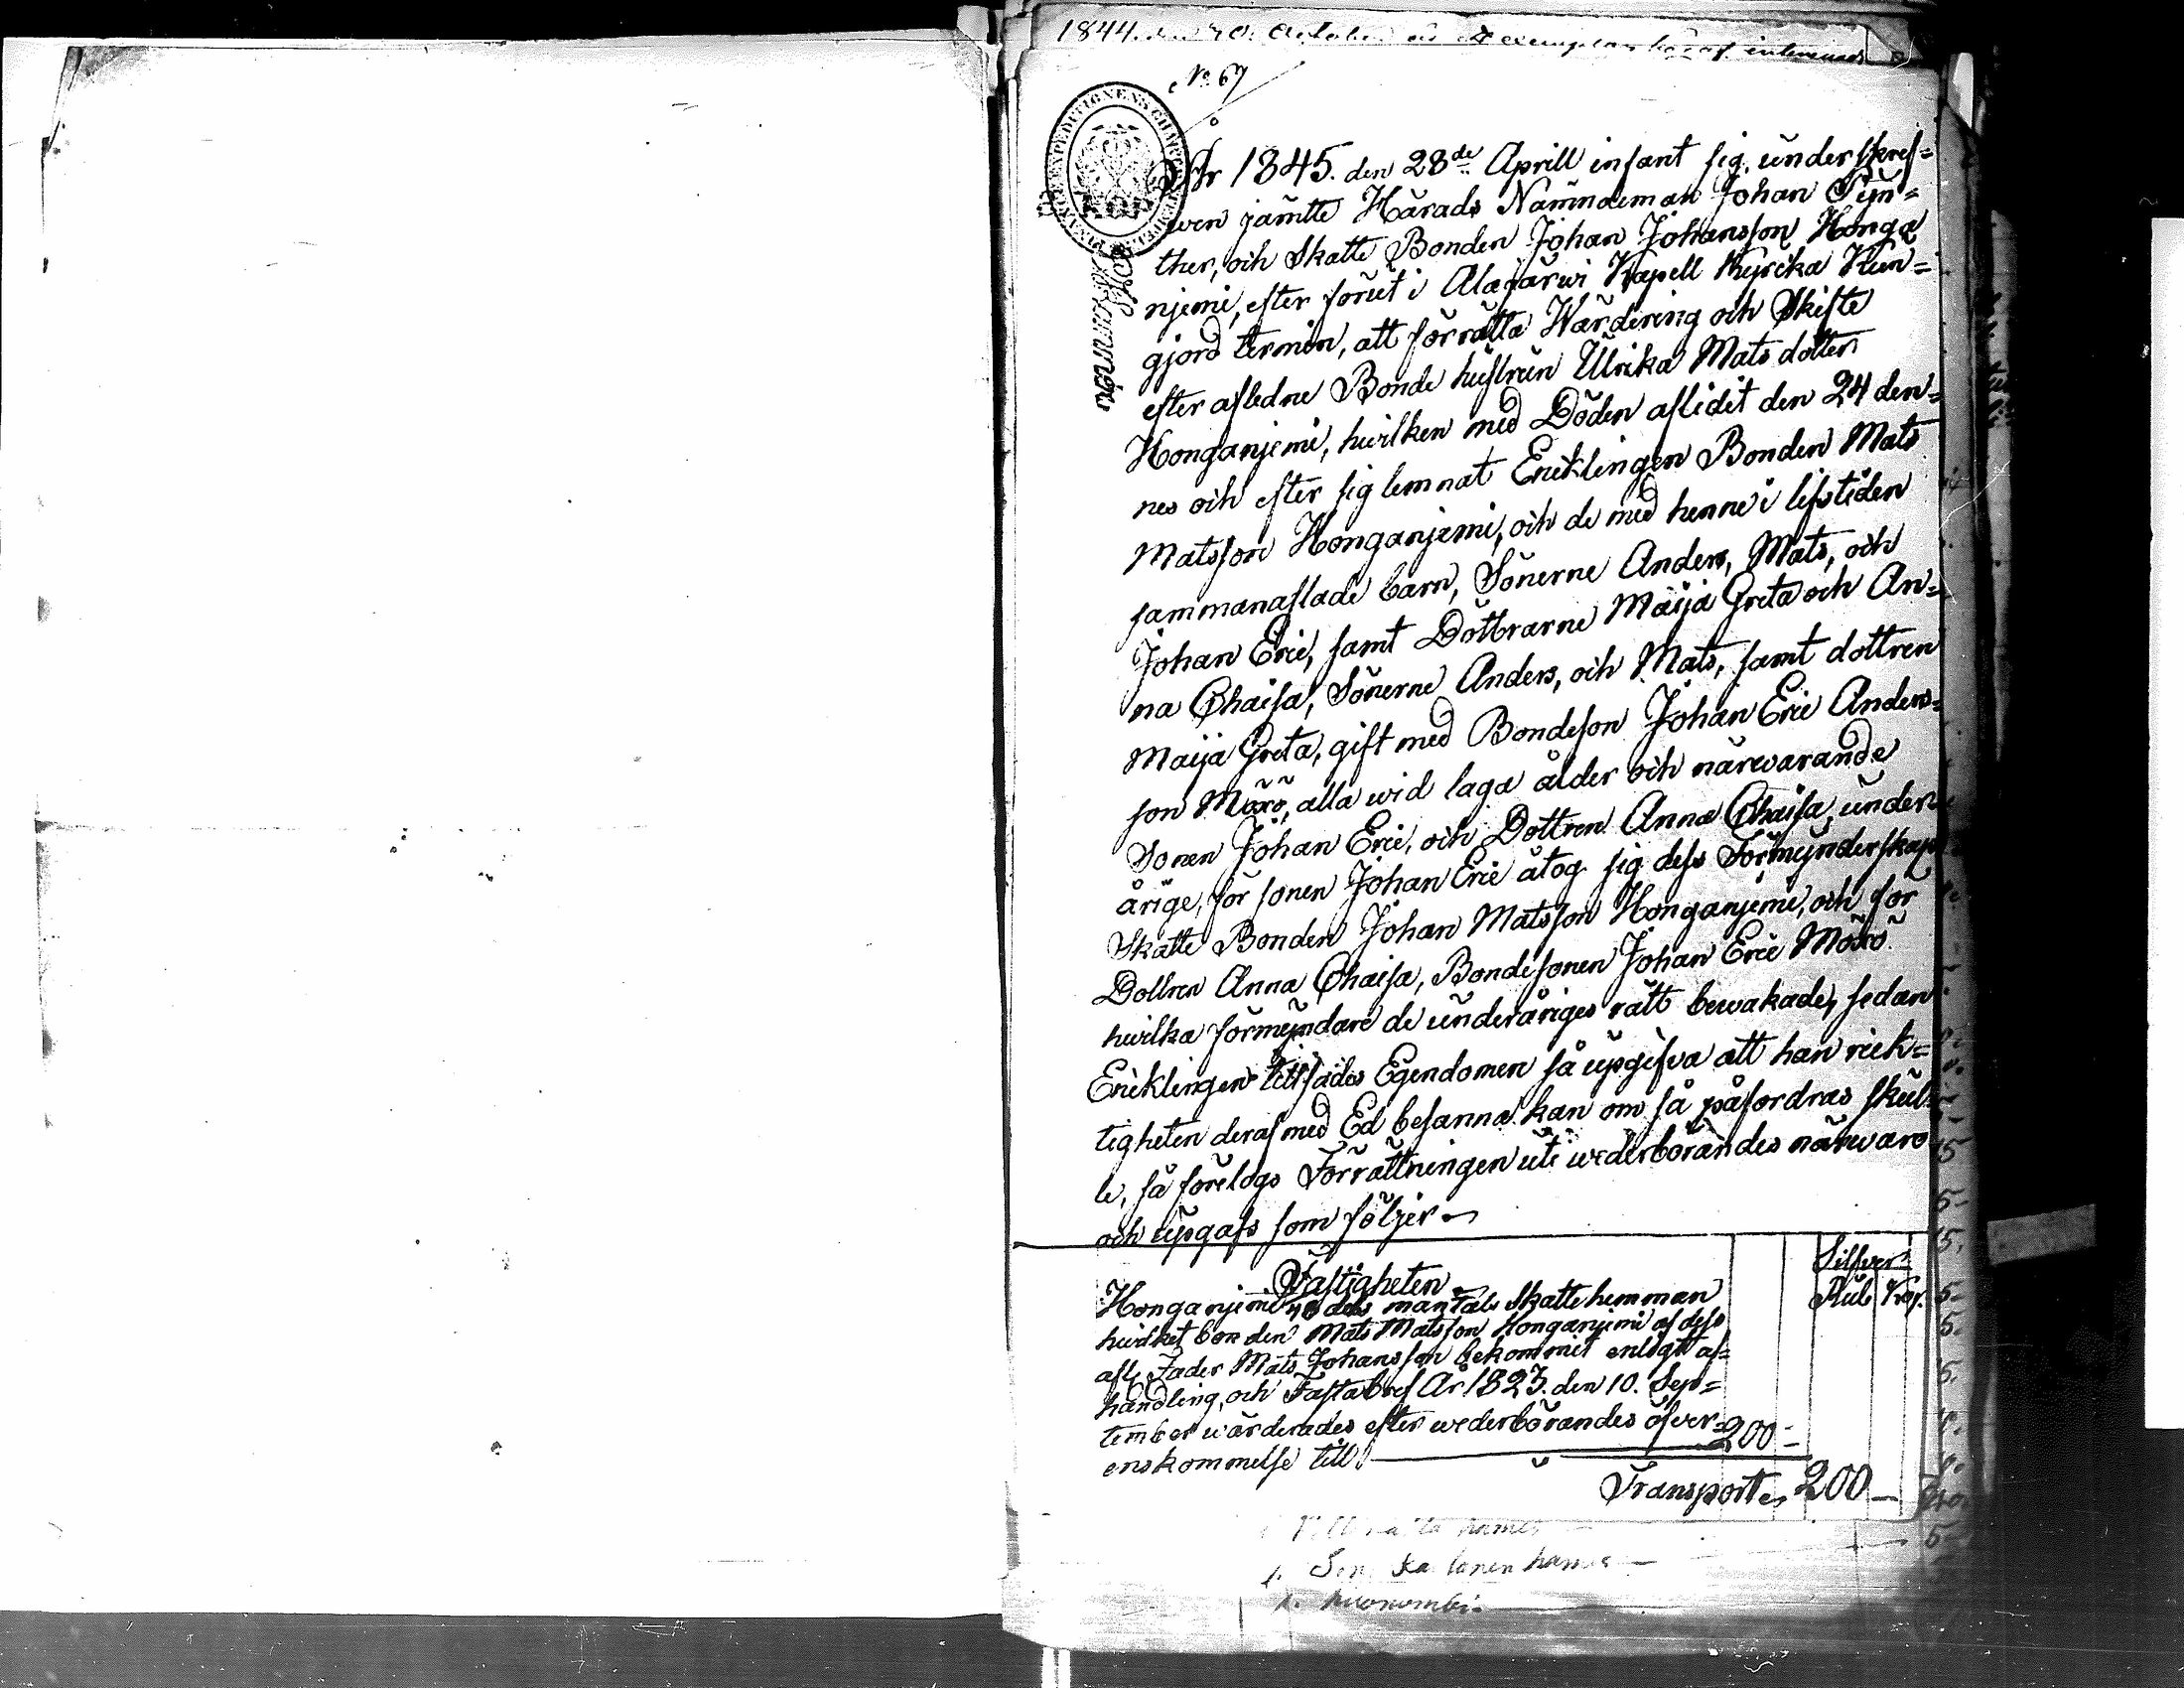 1844. den
exemplar häraf
No 67
År 1845. den 28de Aprill infant sig, underskref=
wen jämtte Härads Nämndeman Johan Sÿn=
ther, och Skatte Bonden Johan Johansson Honga
njemi, efter förut i Alajärwi Kapell Kyrcka Kun=
gjord termin, att förrätta Wärdering och Skifte
efter afledne Bonde hustrun Ulrika Mats dotter
Honganjemi, hwilken med Döden aflidit den 24 den=
nes och efter sig lemnat Encklingen Bonden Mats
Matsson Honganjemi, och de med henne i lifstiden
sammanaflade barn, Sönerne Anders, Mats, och
Johan Eric, samt Döttrarne Maija Greta och An=
na Chaisa, Sönerne Anders, och Mats, samt dottren
Maija Greta, gift med Bondeson Johan Eric Anders=
son Mörö, alla wid laga ålder och närwarande
Sonen Johan Eric, och Dottren Anna Chaisa, under
årige, för sonen Johan Eric åtog sig dess Förmynderskap
Skatte Bonden Johan Matsson Honganjemi, och för
Dottren Anna Chaisa, Bondesonen Johan Eric Mörö
hwilka förmyndare de underåriges rätt bewakade, sedan
Encklingen tillsades Egendomen så upgifva att han rick=
tigheten deraf med Ed besanna kan om så påfordras skul=
le, så företogs Förrättningen uti wederbörandes närwaro
och upgafs som följer
Silfver
Rub Kop.
Fastigheten
Honganjemi 48 dels mantals Skatte hemman
hwilket bonden Mats Matsson Honganjemi af dess
afl. Fader Mats Johansson bekommit enligt af=
handling, och Fastabref År 1823. den 10. Sep=
tember wärderades efter wederbörandes öfver=
enskommelse till 200 -
Transport 200 -
hames
1.